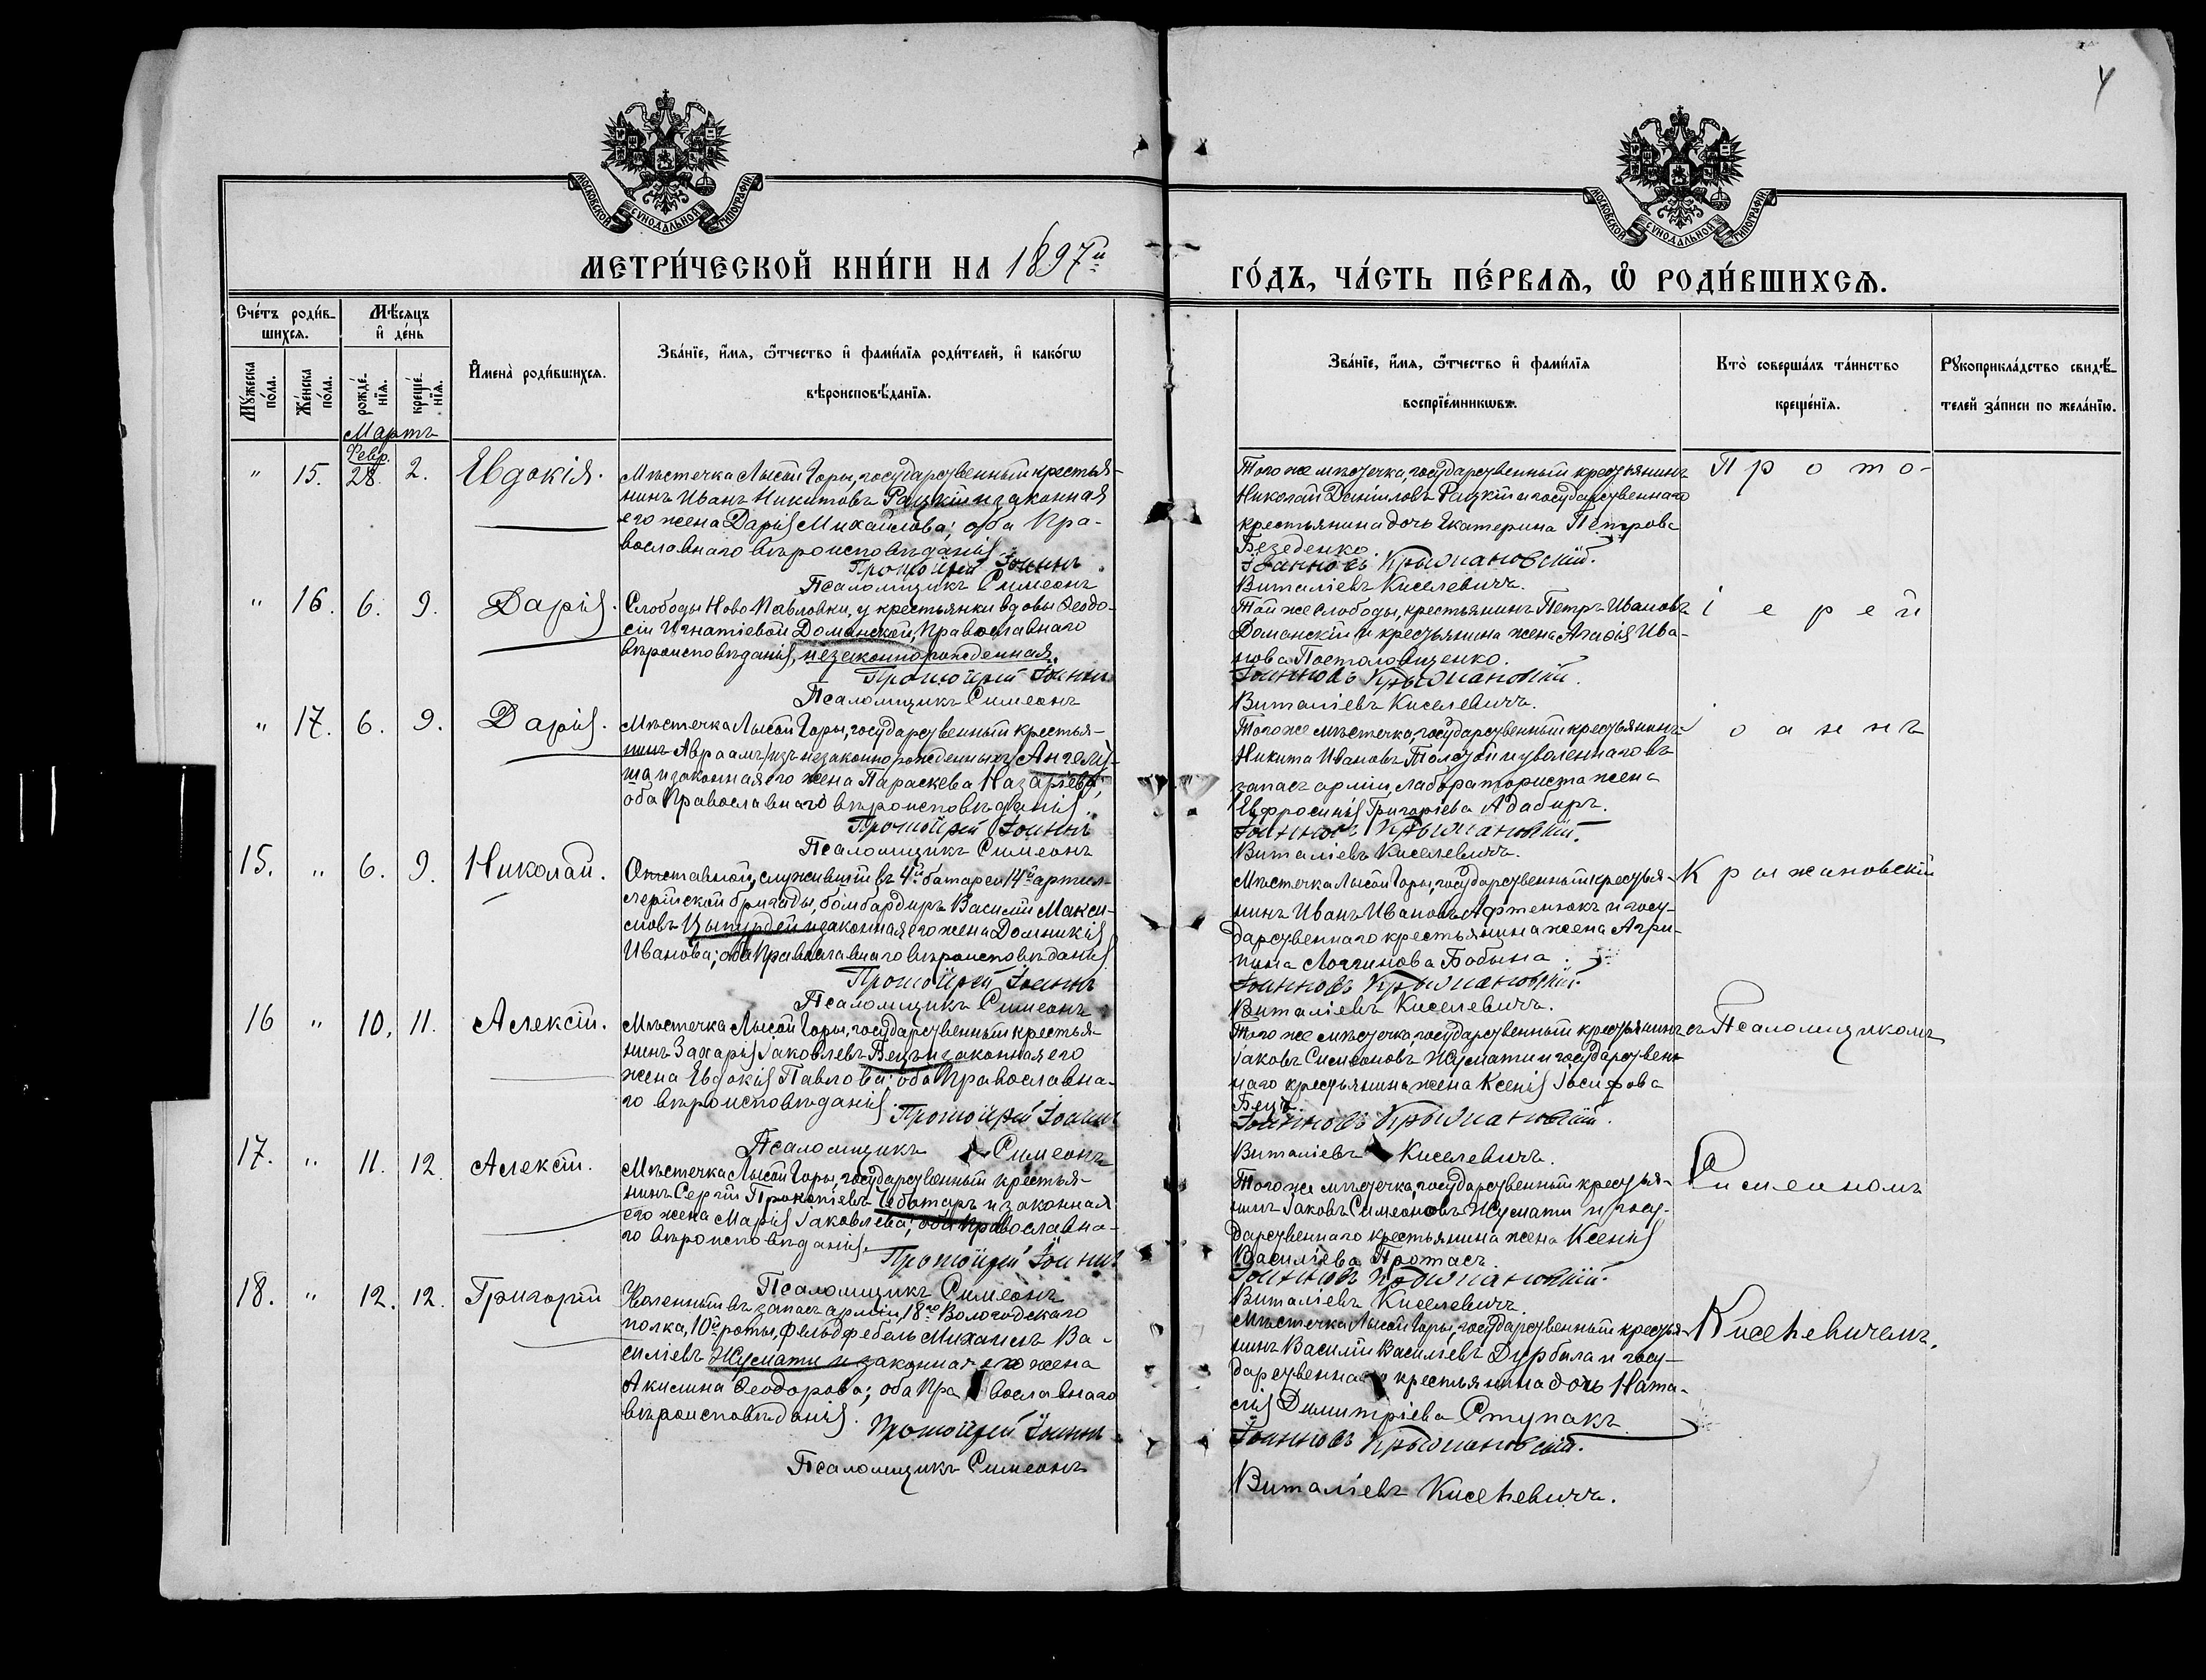 4
МОСКОВСКОЙ СѴНОДАЛЬНОЙ ТИПОГРАФІИ
МОСКОВСКОЙ СѴНОДАЛЬНОЙ ТИПОГРАФІИ
МЕТРИ́ЧЕСКОЙ КНИ́ГИ НА 1897й
ГО́ДЪ, ЧА́СТЬ ПЕ́РВАЯ, Ѡ РОДИ́ВШИХСЯ.
Сче́тъ роди́в-
шихся.
Му́жеска
по́ла.
Же́нска
по́ла.
Мѣ́сяцъ
и де́нь
рожде́-
нія.
креще́-
нія.
Имена̀ роди́вшихся.
Зва́ніе, и́мя, ѻ́тчество и фами́лія роди́телей, и како́гѡ
вѣроисповѣ́данія.
Зва́ніе, и́мя, ѻ́тчество и фами́лія
воспріе́мникѡвъ.
Кто̀ соверша́лъ та́инство
креще́нія.
Рукоприкла́дство свидѣ́-
телей за́писи по жела́нію.
Мартъ
Февр.
" 15. 28. 2. Евдокія.
Мѣстечка Лысой Горы, государственный крестья-
нинъ Иванъ Никитовъ Рацкій и законная
его жена Дарія Михайлова; оба Пра-
вославнаго вѣроисповѣданія.
Протоіерей Іоаннъ
Псаломщикъ Симеонъ
Того же мѣстечка, государственный крестьянинъ
Николай Даніиловъ Рацкій и государственнаго
крестьянина дочь Екатерина Петрова
Безеденко.
Іоанновъ Крыжановскій.
Виталіевъ Киселевичъ.
Прото-
" 16. 6. 9. Дарія.
Слободы Ново Павловки, у крестьянки вдовы Ѳеодо-
сіи Игнатіевой Доманской, Православнаго
вѣроисповѣданія, незаконнорожденная.
Протоіерей Іоаннъ
Псаломщикъ Симеонъ
Той же слободы, крестьянинъ Петръ Ивановъ
Доманскій и крестьянина жена Агафія Ива-
нова Постоловщенко.
Іоанновъ Крыжановскій.
Виталіевъ Киселевичъ.
іерей
" 17. 6. 9. Дарія.
Мѣстечка Лысой Горы, государственный крестья-
нинъ Авраамъ (изъ незаконнорожденныхъ) Ангелу-
ша и законная его жена Параскева Назаріева;
оба Православнаго вѣроисповѣданія.
Протоіерей Іоаннъ
Псаломщикъ Симеонъ
Того же мѣстечка, государственный крестьянинъ
Никита Ивановъ Толстой и уволеннаго въ
запасъ арміи, лабораториста жена
Евфросинія Григоріева Адабиръ.
Іоанновъ Крыжановскій.
Виталіевъ Киселевичъ.
Іоаннъ
15. " 6. 9. Николай.
Отставной, служившій въ 4й батареи 14й артил-
лерійской бригады, бомбардиръ Василій Макси-
мовъ Цыпурдей и законная его жена Домникія
Иванова; оба Православнаго вѣроисповѣданія
Протоіерей Іоаннъ
Псаломщикъ Симеонъ
Мѣстечка Лысой Горы, государственный крестья-
нинъ Иванъ Ивановъ Афтенюкъ и госу-
дарственнаго крестьянина жена Агри-
пина Логгинова Бабына.
Іоанновъ Крыжановскій.
Виталіевъ Киселевичъ.
Крыжановскій
16 " 10. 11. Алексій.
Мѣстечка Лысой Горы, государственный крестья-
нинъ Захарія Іаковлевъ Бецъ и законная его
жена Евдокія Павлова; оба Православна-
го вѣроисповѣданія.
Протоіерей Іоаннъ
Псаломщикъ Симеонъ
Того же мѣстечка, государственный крестьянинъ
Іаковъ Симеоновъ Жусмати и государствен-
наго крестьянина жена Ксенія Іосифова
Бецъ.
Іоанновъ Крыжановскій.
Виталіевъ Киселевичъ.
съ Псаломщикомъ
17. " 11. 12. Алексій.
Мѣстечка Лысой Горы, государственный крестья-
нинъ Сергій Прокопіевъ Чеботарь и законная
его жена Марія Іаковлева; оба Православна-
го вѣроисповѣданія.
Протоіерей Іоаннъ
Псаломщикъ Симеонъ
Того же мѣстечка, государственный крестья-
нинъ Іаковъ Симеоновъ Жусмати и госу-
дарственнаго крестьянина жена Ксенія
Василіева Протасъ.
Іоанновъ Крыжановскій.
Виталіевъ Киселевичъ.
Симеономъ
18. " 12. 12. Григорій
Уволенный въ запасъ арміи, 18го Вологодскаго
полка, 10й роты, фельдфебель Михаилъ Ва-
силіевъ Жусмати и законная его жена
Акилина Ѳеодорова; оба Православнаго
вѣроисповѣданія.
Протоіерей Іоаннъ
Псаломщикъ Симеонъ
Мѣстечка Лысой Горы, государственный крестья-
нинъ Василій Василіевъ Дурбала и госу-
дарственнаго крестьянина дочь Ната-
лія Димитріева Ступакъ.
Іоанновъ Крыжановскій.
Виталіевъ Киселевичъ.
Киселевичемъ.